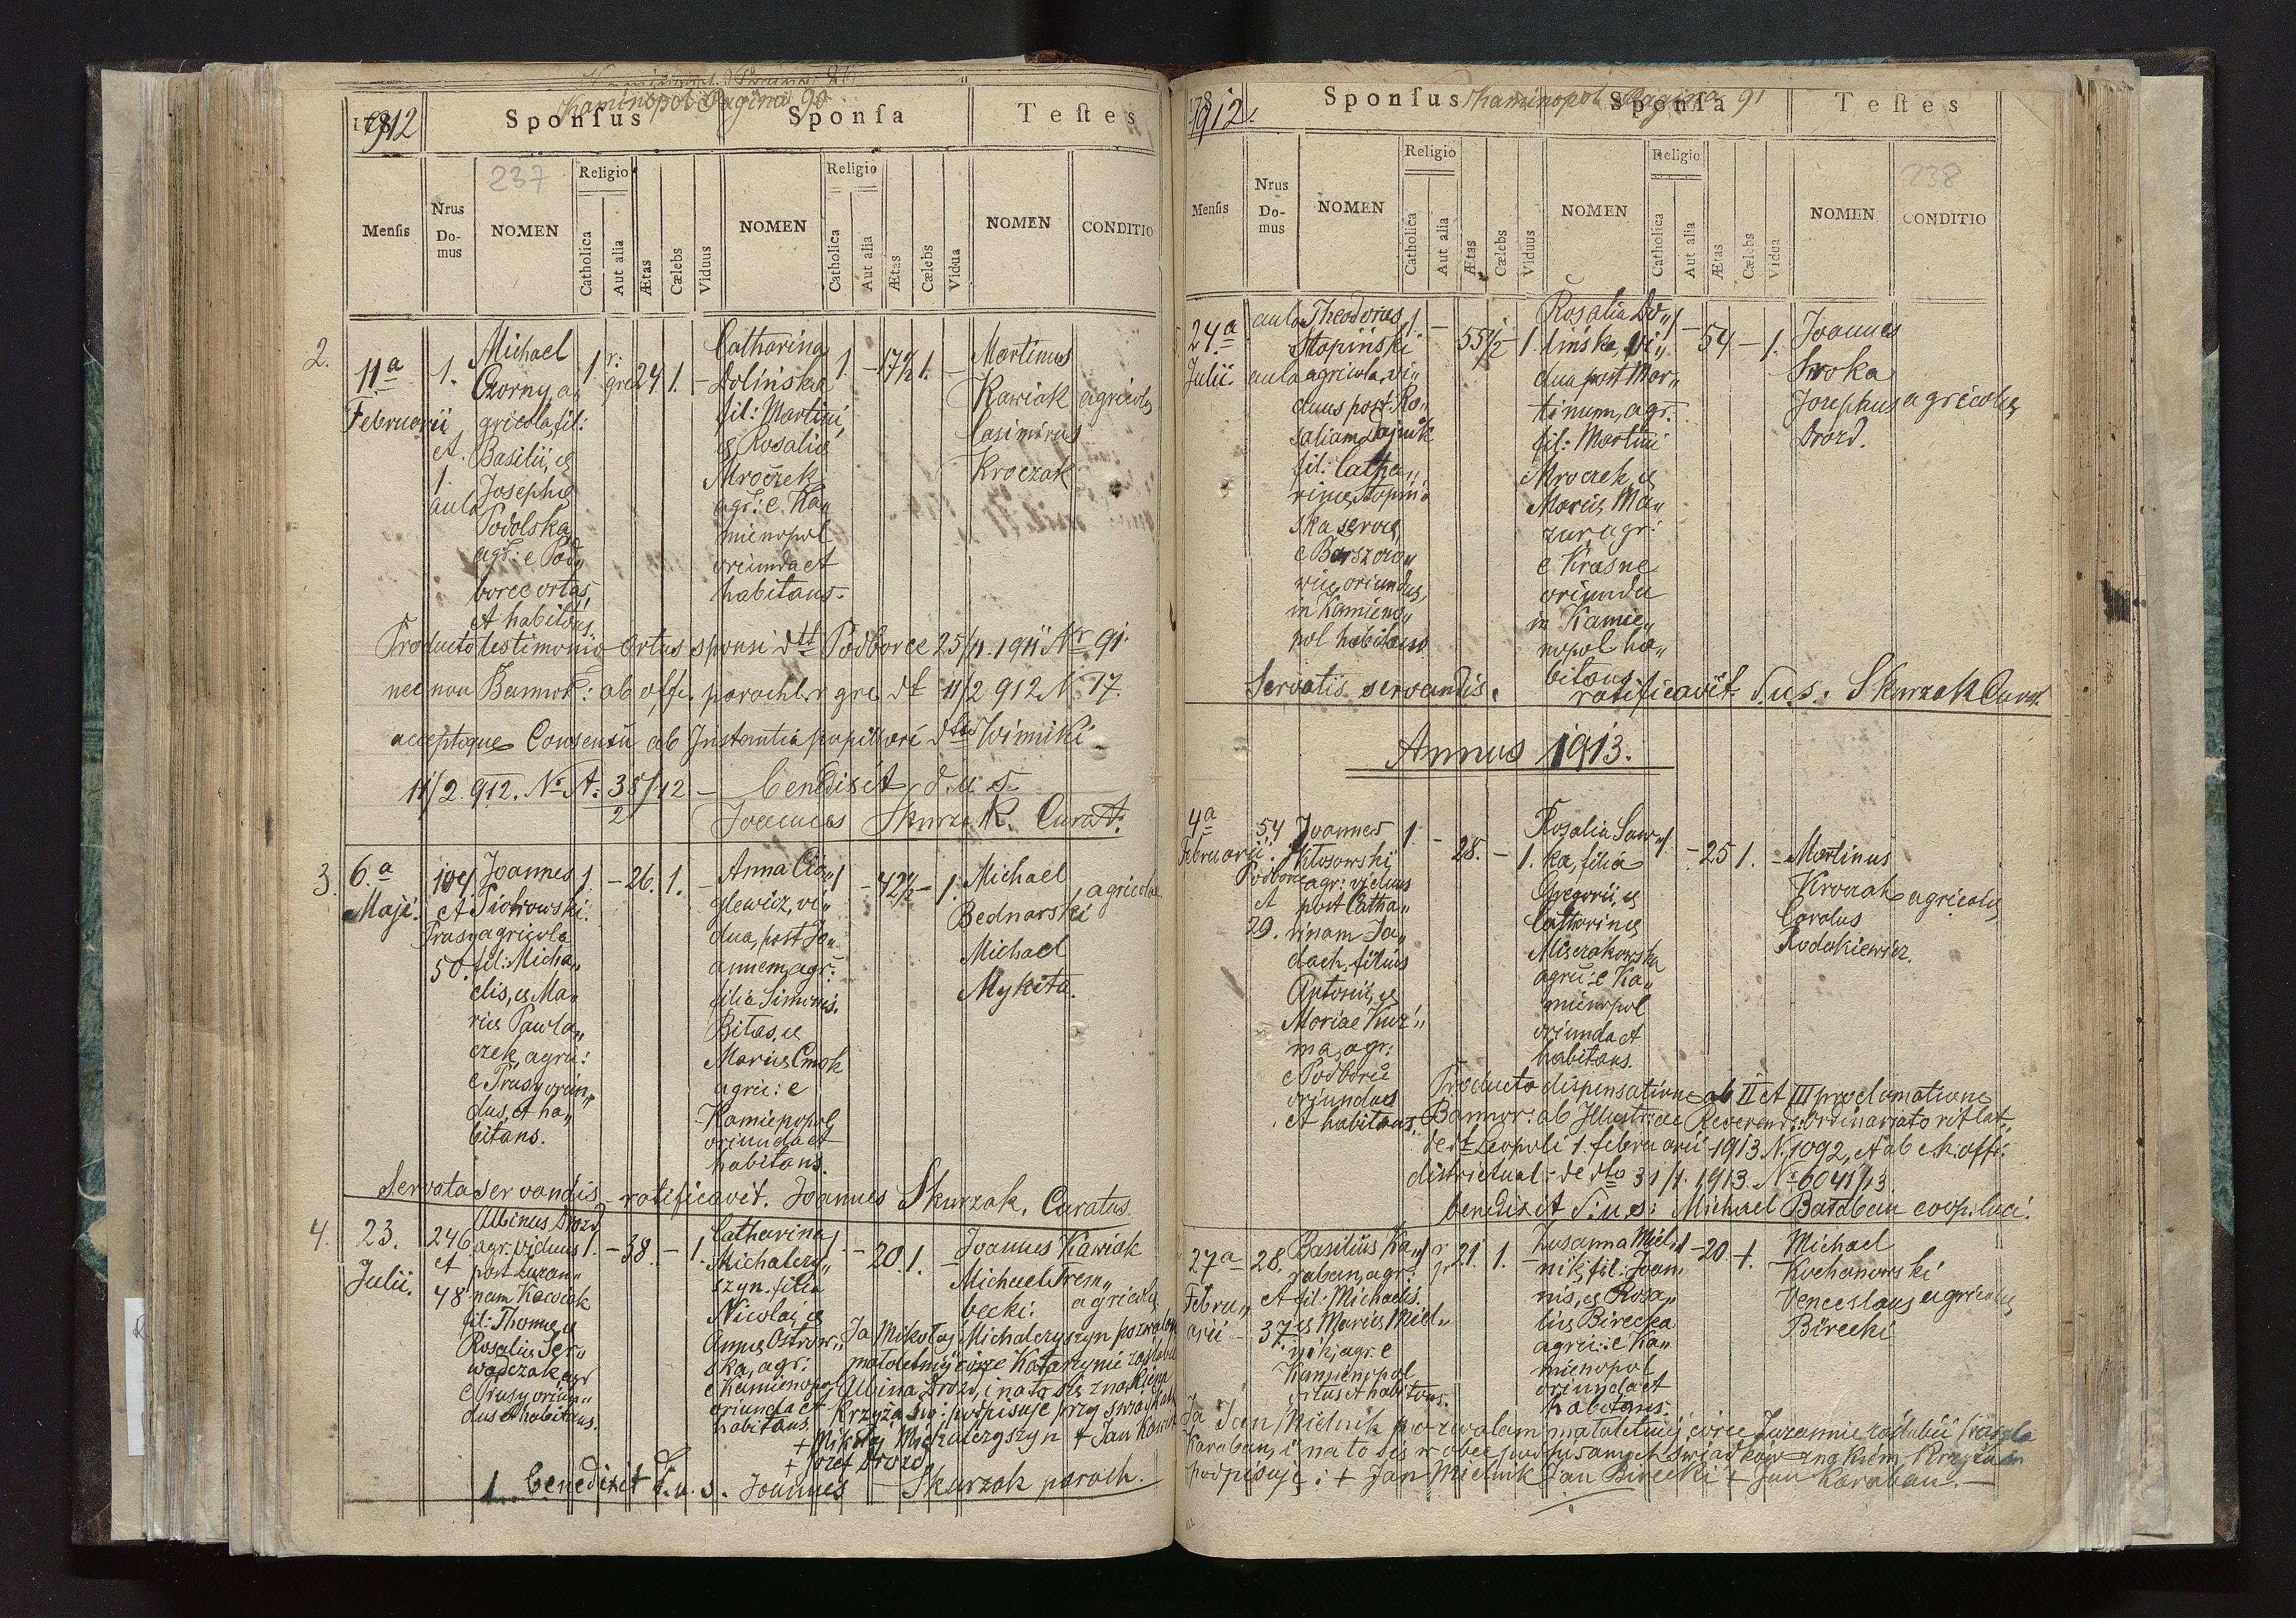 Kaminopol Pagina 90
1912
Sponſus
Sponſa
Teſtes
237
Menſis
Nrus
Do-
mus
NOMEN
Religio
Catholica
Aut alia
Ætas
Cælebs
Viduus
NOMEN
Religio
Catholica
Aut alia
Ætas
Cælebs
Vidua
NOMEN
CONDITIO
2.
11a
Februarii
1.
et
1.
aula
Michael
Czorny, a„
gricola, fil:
Basilii, &
Josephæ
Podolska
agr: e Pod„
borce ortus,
et habitans.
1 r: gre 24 1. –
Catharina
Dolińska
fil: Martini,
& Rosaliæ
Mroczek
agr: e Ka„
mienopol
oriunda et
habitans.
1. – 17½ 1. –
Martinus
Kawiak agricolæ
Casimirus
Kroczak
Producto testimonio ortus sponsi dtt Podborce 25/11. 1911 Nr 91.
nec non Bannor: ab offi. paroch. r. gre dt 11/2 912 N. 17.
acceptoque Consensu ab Instantia pupillari dtto Winniki
11/2 912. No A. 38/12 – benedixit d. u. s.
2
Joannes Skurzak. Curat.
3.
6.a
Maji.
104
et
Prusy
50.
Joannes
Piotrowski.
agricola
fil: Micha„
elis, & Ma„
riæ Pawla„
czek, agric:
e Prusy oriun„
dus, et ha„
bitans.
1. – 26. 1. –
Anna Cią„
glewicz, vi„
dua, post Jo„
annem, agr:
filia Simonis.
Bitas, &
Mariæ Cmok
agric: e
Kamienopol
oriunda et
habitans.
1 – 42½ – 1.
Michael
Bednarski agricolæ
Michael
Mykita.
Servata servandis – ratificavit. Joannes Skurzak, Curatus.
4.
23.
Julii.
246
et
48
Albinus Drozd
agr. viduus
post Zuzan„
nam Kawiak
fil: Thomæ, &
Rosaliæ Ser„
wadczak, agr
e Prusy oriun„
dus et habitans.
1. – 38. – 1.
Catharina
Michalczy„
szyn. filia
Nicolai, &
Annæ Ostrow„
ska, agr:
e Kamienopol
oriunda et
habitans.
1 – 20. 1. –
Joannes Kawiak
Michael Trem„
becki. agricolæ
Ja Mikołaj Michalczyszyn pozwalam
małoletniej córce Katarzynie zaślubić
Albina Drozd, i na to się znakiem
Krzyża św: podpisuję przy świadkach
+ Mikołaj Michalczyszyn + Jan Kawiak
+ Józef Drozd
1 benedixit d. u. s. Joannes Skurzak paroch.
1912.
Sponſus
Kaminopol Pagina 91
Sponſa
Teſtes
238
Menſis
Nrus
Do-
mus
NOMEN
Religio
Catholica
Aut alia
Ætas
Cælebs
Viduus
NOMEN
Religio
Catholica
Aut alia
Ætas
Cælebs
Vidua
NOMEN
CONDITIO
24.a
Julii.
aula
aula
Theodorus
Stopiński
agricola, vi„
duus post Ro„
saliam Dajnik
fil: Catha„
rinæ, Stopiń„
ska servæ,
e Barszczo„
wice, oriundus,
in Kamieno„
pol habitans
1. – 55½ – 1.
Rosalia Do„
lińska, vi„
dua post Mar„
tinum, agr.
fil: Martini
Mroczek, &
Mariæ Ma„
zur, agr:
e Krasne
oriunda
in Kamie„
nopol ha„
bitans
1 – 54 – 1.
Joannes
Sroka
Josephus agricolæ
Drozd.
Servatis servandis. ratificavit. d.u.s. Skurzak Curat.
Annus 1913.
4a
Februarii.
54
Podborce
et
29.
Joannes
Kłosowski
agr: viduus
post Catha„
rinam Ja„
dach, filius
Antonii, &
Mariae Kuź„
ma, agr:
e Podborce
oriundus
et habitans.
1. – 28. – 1.
Rosalia Saw„
ka, filia
Gregorii, &
Catharinæ
Miszakowska
agric: e Ka„
mienopol
oriunda et
habitans.
1. – 25 1. –
Martinus
Kroczak agricolæ
Carolus
Rodakiewicz.
Producta dispensatione ab II et III proclamatione
Bannor: ab Illustriae Reverend: Ordinariato rit lat.
de dt Leopoli 1. februarii 1913 N. 1092, et ab c.k. offi:
districtual: de dto 31/1. 1913. No 6041/13
benedixit d.u.s: Michael Baraban coop. loci.
27a
Febru„
arii
28.
et
37.
Basilius Ka„
raban, agr:
fil: Michaelis.
& Mariæ Miel„
nik, agr. e
Kamienopol
ortus et habitans.
1 r. g. 21. 1. –
Zusanna Miel„
nik, fil: Joan„
nis, & Rosa„
liæ Birecka
agric: e Ka„
mienopol
oriunda et
habitans.
1 – 20. 1.
Michael
Kochanowski
Venceslaus agricolæ
Birecki
Ja Jan Mielnik pozwalam małoletniej córce Zuzannie zaślubić Wasyla
Karaban, i na to się wobec podpisanych świadków znakiem Krzyża św
podpisuję: + Jan Mielnik Jan Birecki + Jan Karaban. –